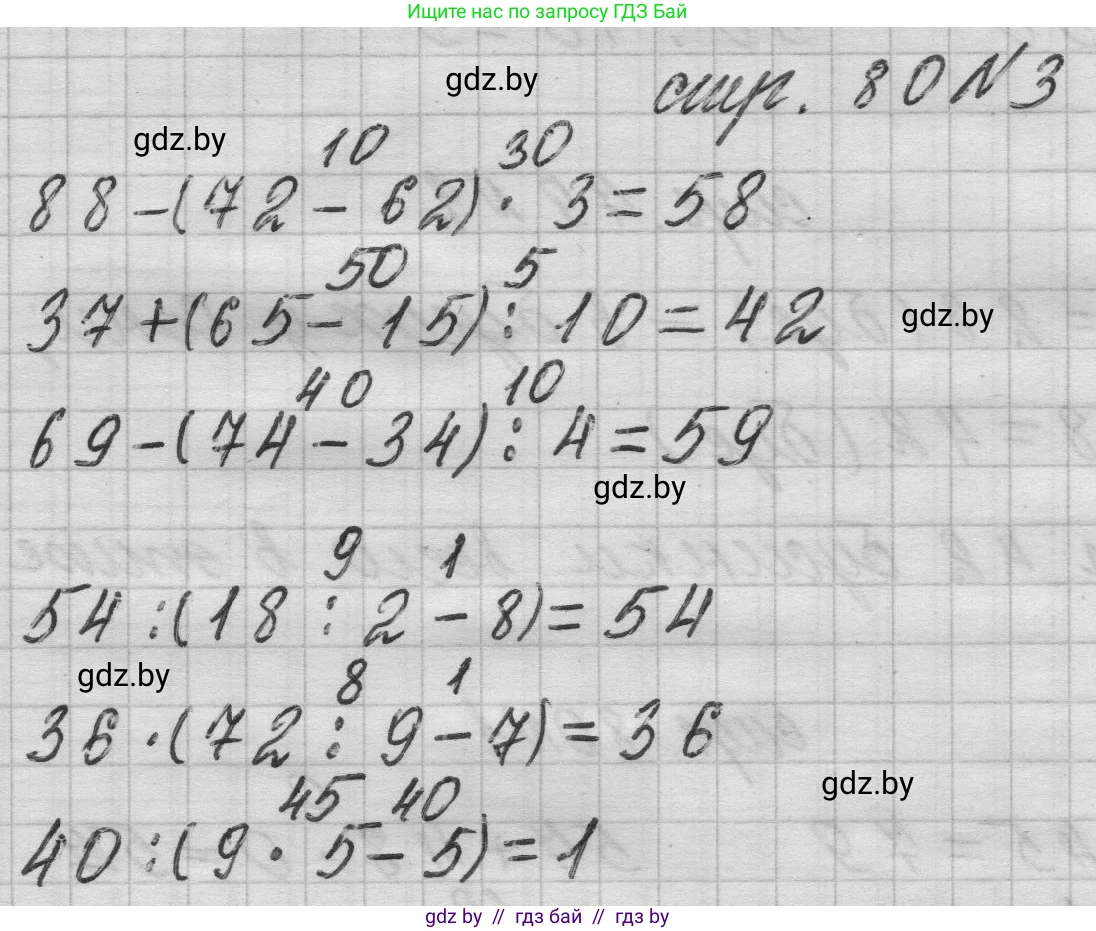 Ищите нас по запросу ГДЗ Бай
gdz.by
стр. 80 № 3
gdz.by
10 30
88-(72-62)·3=58
50 5
37+(65-15):10=42
gdz.by
40 10
69-(74-34):4=59
gdz.by
9 1
54:(18:2-8)=54
gdz.by
8 1
36·(72:9-7)=36
gdz.by
45 40
40:(9·5-5)=1
gdz by // гдз бай // гдз by